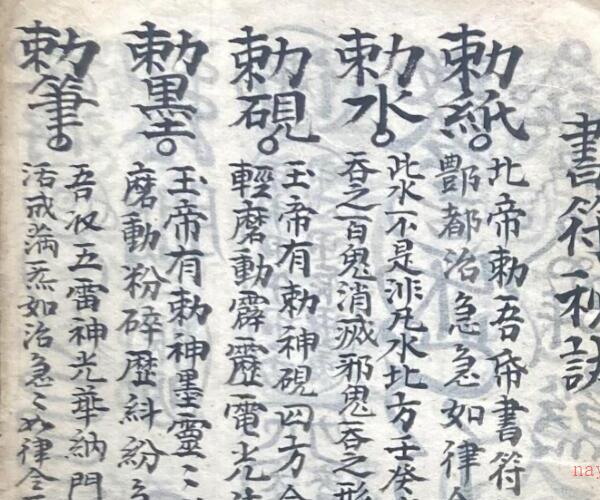 書符秘訣
勅紙
北帝勅吾帝書符
酆都治急急如律
勅水
此水不是非凡水北方壬癸
吞之百鬼消滅邪鬼吞之形
勅硯
玉帝有勅神硯四方
輕磨動霹靂電光
勅墨
玉帝有勅神墨靈〻
磨動粉碎歷糾紛
勅筆
吾奴五雷神光華納門
活戒滿炁如治急〻如律令
nay